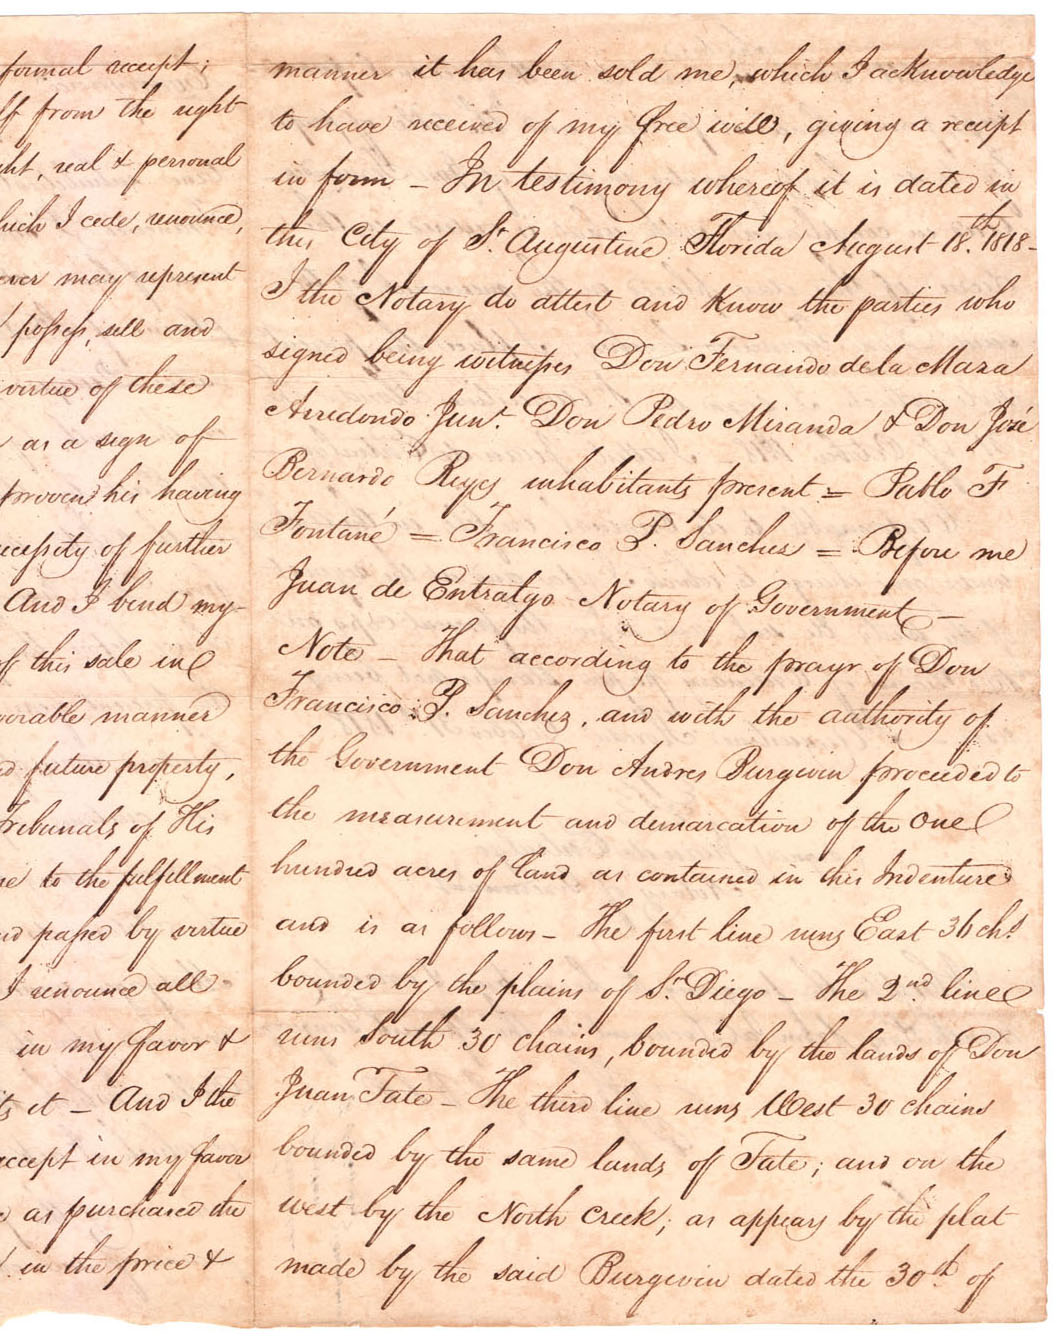 formal receipt;
from the right
real & personal
which I cede, renounce,
ever may represent
possess, sell and
virtue of these
as a sign of
proven his having
necessity of further
And I bend my-
of this sale in
manner
future property,
Tribunals of His
to the fulfillment
passed by virtue
I renounce all
in my favor &
it – And I the
accept in my favor
as purchased the
in the price &
manner it has been sold me, which I acknowledge
to have received of my free will, giving a receipt
in form – In testimony whereof it is dated in
this City of St Augustine Florida August 18.th 1818–
I the Notary do attest and know the parties who
signed being witnesses Don Fernando de la Maza
Arredondo Junr. Don Pedro Miranda & Don José
Bernardo Reyes inhabitants present = Pablo F
Fontané = Francisco P. Sanchez = Before me
Juan de Entralgo Notary of Government –
Note – That according to the prayr of Don
Francisco P. Sanchez, and with the authority of
the Government Don Andres Burgevin proceeded to
the measurement and demarcation of the one
hundred acres of land as contained in this Indenture
and is as follows – The first line runs East 36 chs
bounded by the plains of Sn Diego – The 2nd. line
runs South 30 chains, bounded by the lands of Don
Juan Tate – The third line runs West 30 chains
bounded by the same lands of Tate; and on the
west by the North Creek; as appears by the plat
made by the said Burgevin dated the 30th. of